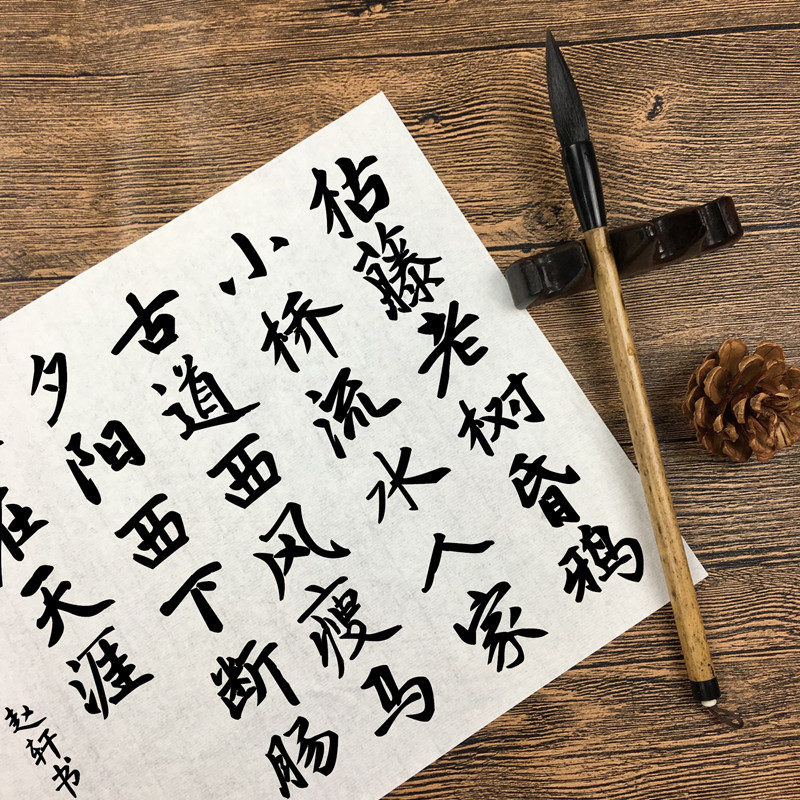 枯藤老树昏鸦
小桥流水人家
古道西风瘦马
夕阳西下断肠
在天涯
赵轩书